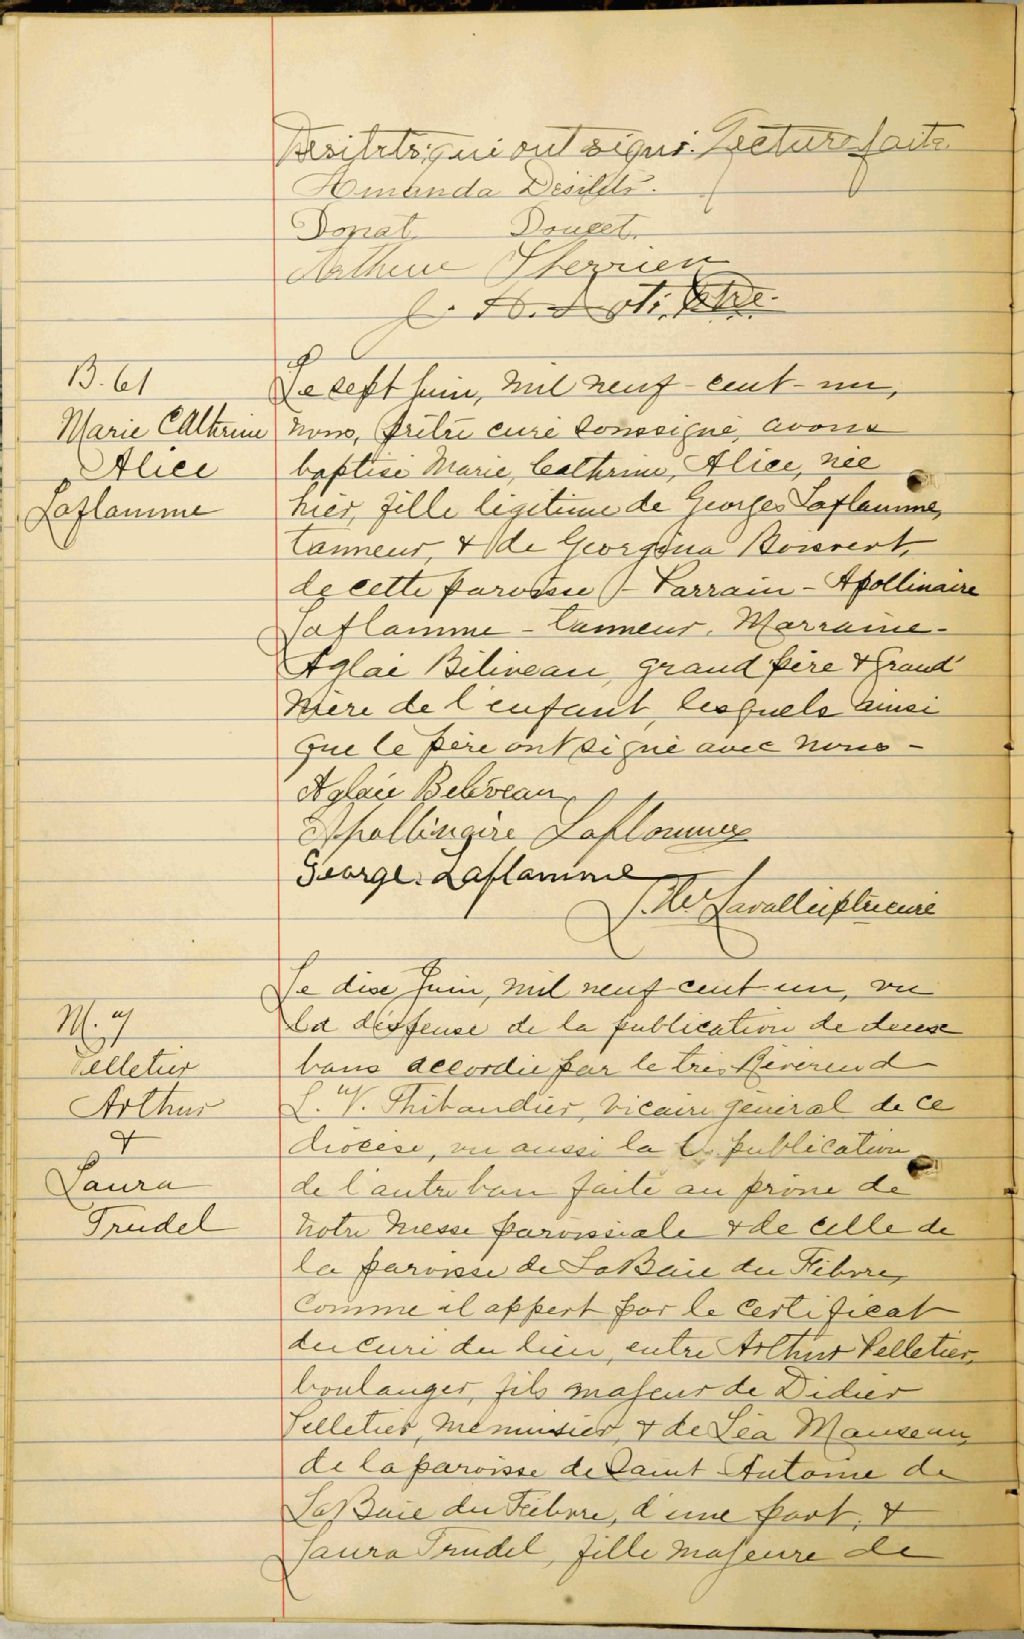 Desilets qui ont signé. Lecture faite.
Amanda Désilets.
Donat Doucet.
Arthur Therrien
J. A. Loti. Ptre.
B. 61
Marie Cathrine
Alice
Laflamme
Le sept Juin, mil neuf-cent-un,
nous, prêtre curé soussigné, avons
baptisé Marie, Cathrine, Alice, née
hier, fille légitime de Georges Laflamme,
tanneur, & de Georgina Boisvert,
de cette paroisse - Parrain - Apollinaire
Laflamme - tanneur. Marraine -
Aglaé Béliveau, grand père & Grand'
Mère de l'enfant, lesquels ainsi
que le père ont signé avec nous -
Aglaée Beliveau
Apollinaire Laflamme
George. Laflamme
Lavallée ptre curé
M. 7
Pelletier
Arthur
&
Laura
Trudel
Le dix Juin, mil neuf-cent-un, vu
la dispense de la publication de deux
bans accordée par le très Révérend
L. V. Thibaudier, vicaire général de ce
diocèse, vu aussi la publication
de l'autre ban faite au prône de
notre Messe paroissiale & de celle de
la paroisse de LaBaie du Febvre,
comme il appert par le certificat
du curé du lieu, entre Arthur Pelletier,
boulanger, fils majeur de Didier
Pelletier, menuisier, & de Léa Manseau,
de la paroisse de Saint-Antoine de
LaBaie du Febvre, d'une part, &
Laura Trudel, fille majeure de